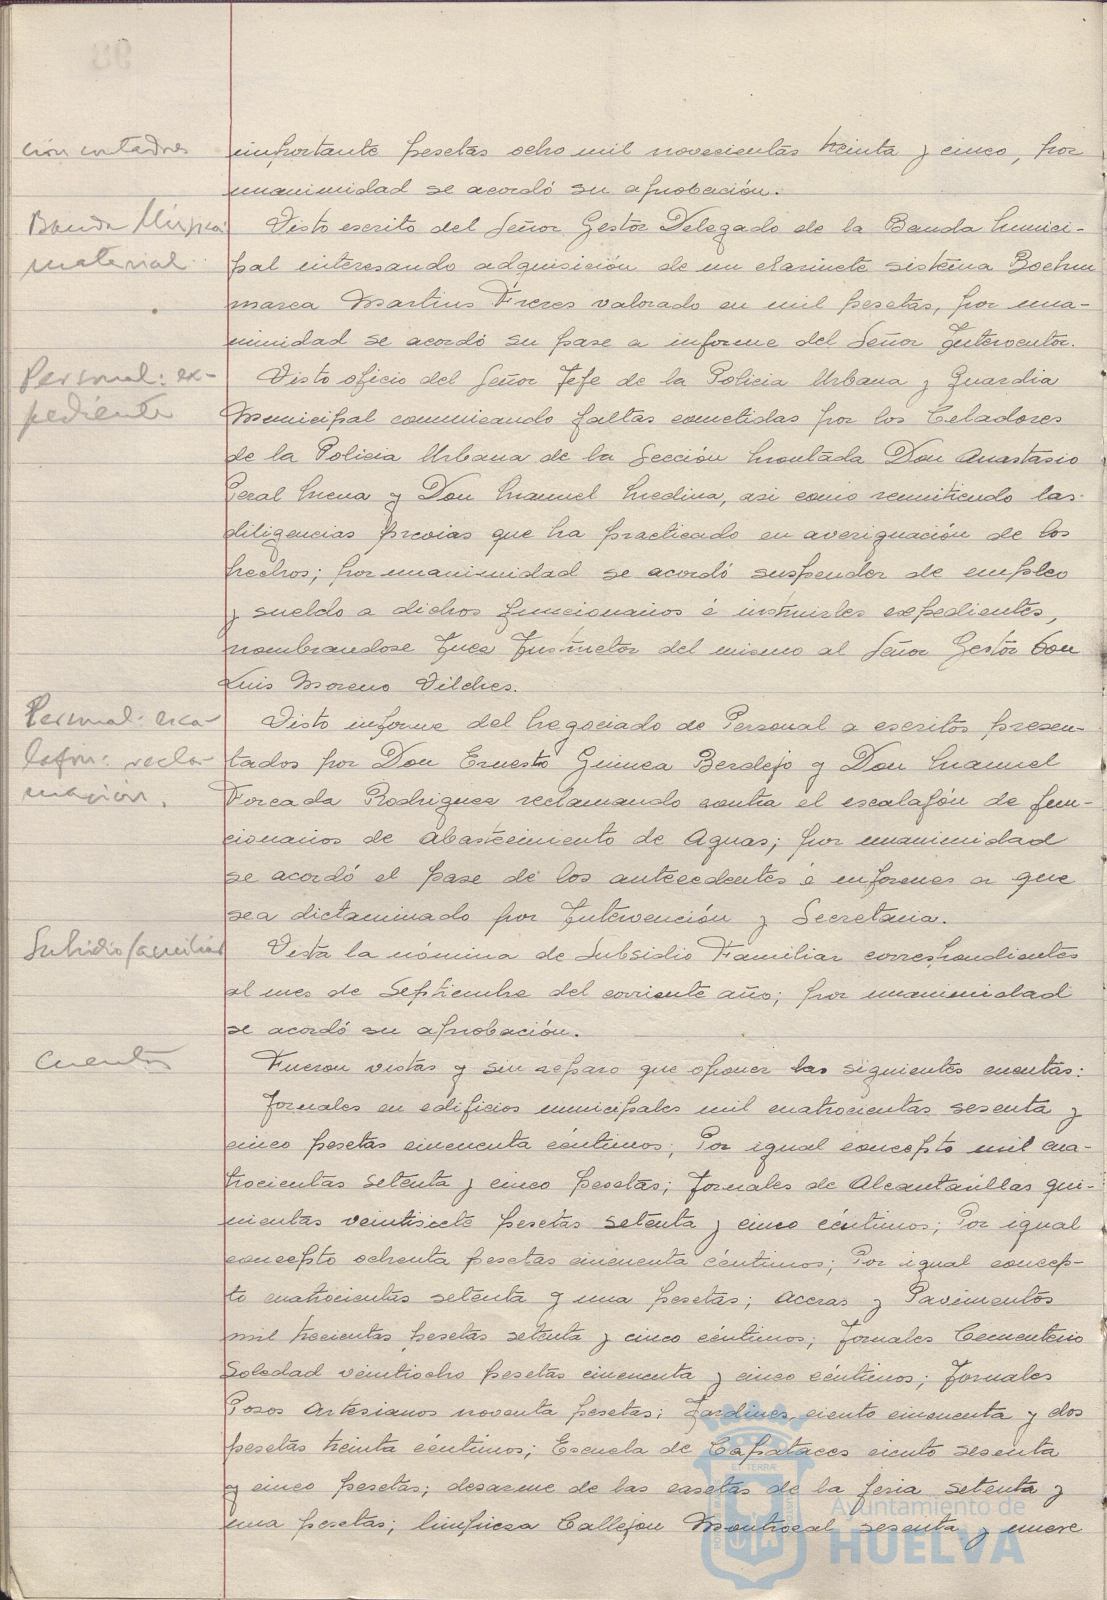 ción contadores
importante pesetas ocho mil novecientas treinta y cinco, por
unanimidad se acordó su aprobación.
Banda Música
material
Visto escrito del Señor Gestor Delegado de la Banda Munici-
pal interesando adquisición de un clarinete sistema Boehm
marca Martins Freres valorado en mil pesetas, por una-
nimidad se acordó su pase a informe del Señor Interventor.
Personal: ex-
pediente
Visto oficio del Señor Jefe de la Policia Urbana y Guardia
Municipal comunicando faltas cometidas por los Celadores
de la Policia Urbana de la Sección Montada Don Anastasio
Peral Mena y Don Manuel Medina, asi como remitiendo las
diligencias previas que ha practicado en averiguación de los
hechos; por unanimidad se acordó suspender de empleo
y sueldo a dichos funcionarios é instruirles expedientes,
nombrandose Juez Instructor del mismo al Señor Gestor Don
Luis Moreno Vilches.
Personal: esca-
lafón: recla-
mación.
Visto informe del Negociado de Personal a escritos presen-
tados por Don Ernesto Guinea Berdejo y Don Manuel
Forcada Rodriguez reclamando contra el escalafón de fun-
cionarios de Abastecimiento de Aguas; por unanimidad
se acordó el pase de los antecedentes é informes a que
sea dictaminado por Intervención y Secretaria.
Subsidio familiar
Vista la nómina de Subsidio Familiar correspondientes
al mes de Septiembre del corriente año; por unanimidad
se acordó su aprobación.
Cuentas
Fueron vistas y sin reparo que oponer las siguientes cuentas:
Jornales en edificios municipales mil cuatrocientas sesenta y
cinco pesetas cincuenta céntimos; Por igual concepto mil cua-
trocientas setenta y cinco pesetas; Jornales de Alcantarillas qui-
nientas veintisiete pesetas setenta y cinco céntimos; Por igual
concepto ochenta pesetas cincuenta céntimos; Por igual concep-
to cuatrocientas setenta y una pesetas; Aceras y Pavimentos
mil trecientas pesetas setenta y cinco céntimos; Jornales Cementerio
Soledad veintiocho pesetas cincuenta y cinco céntimos; Jornales
Posos Artesianos noventa pesetas; Jardines, ciento cincuenta y dos
pesetas treinta céntimos; Escuela de Capataces ciento sesenta
y cinco pesetas; desarme de las casetas de la feria setenta y
una pesetas; limpiesa Callejon Montrocal sesenta y nueve
Ayuntamiento de
HUELVA